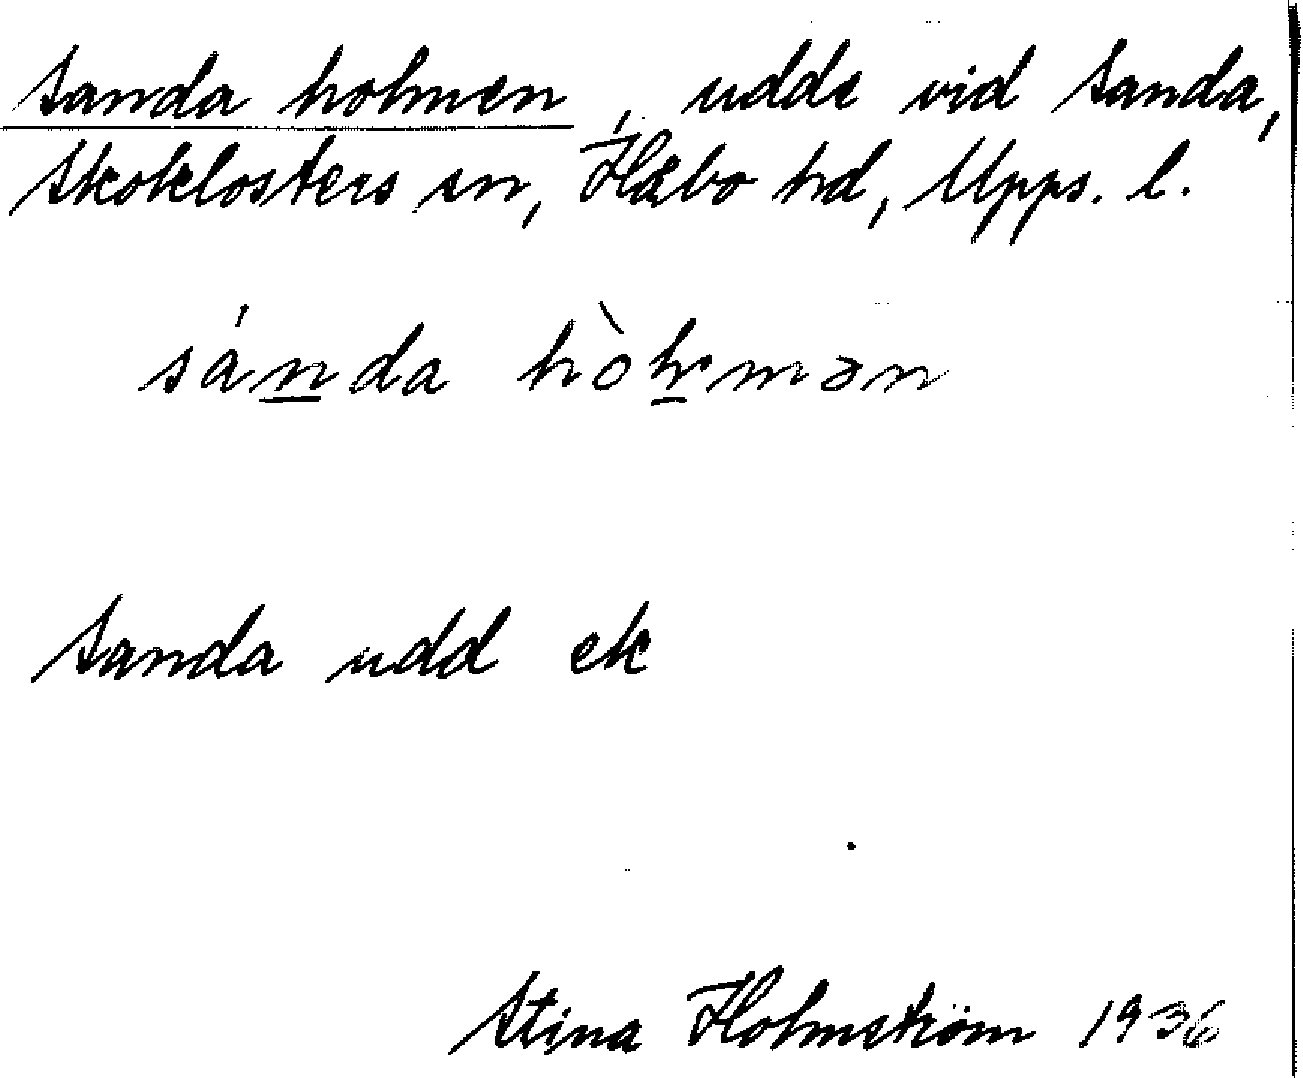 Sanda holmen, udde vid Sanda,
Skoklosters sn, Håbo hd, Upps. l.
sánda hòḻmən
Sanda udd ek
Stina Holmström 1936